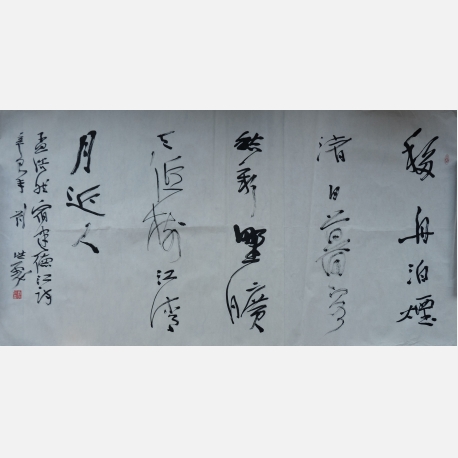 移舟泊煙
渚日暮客
愁新野曠
天低樹江清
月近人
孟浩然宿建德江詩
辛卯年